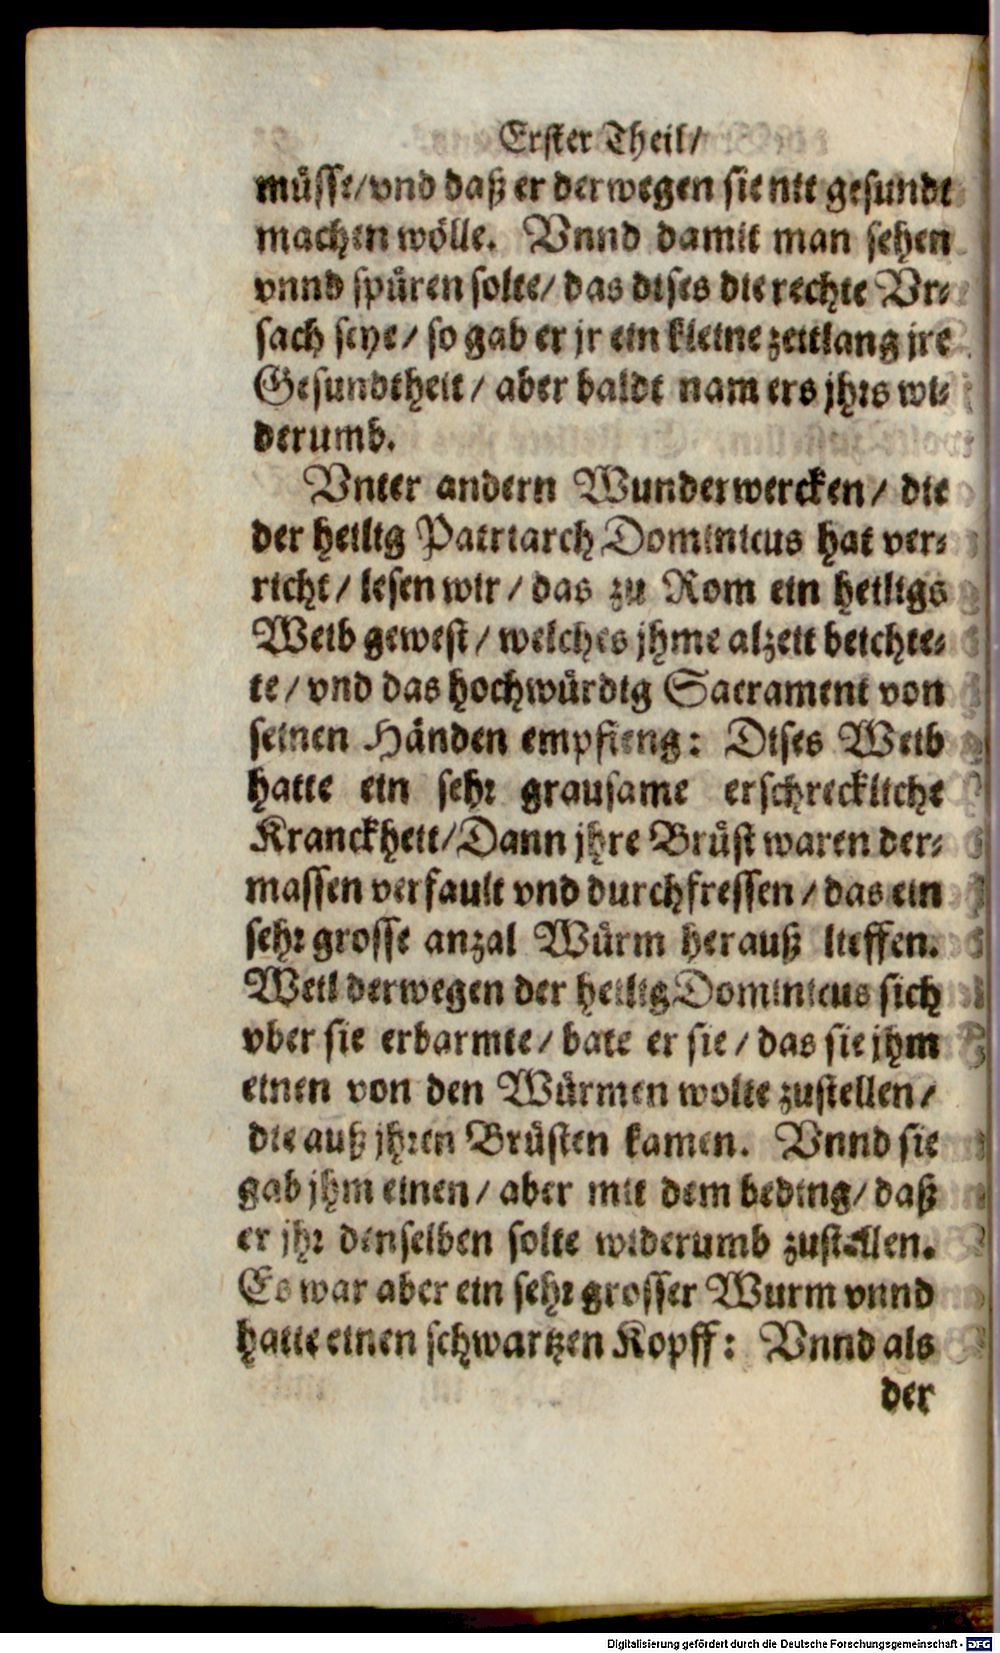 Erster Theil/
müsse/vnd daß er derwegen sie nit gesundt
machen wölle. Vnnd damit man sehen
vnnd spüren solte/ das dises die rechte Vr-
sach seye/ so gab er jr ein kleine zeitlang jre
Gesundtheit/ aber baldt nam ers jhrs wi-
derumb.
Vnter andern Wunderwercken/ die
der heilig Patriarch Dominicus hat ver-
richt/ lesen wir/ das zu Rom ein heiligs
Weib gewest/ welches jhme alzeit beichte-
te/ vnd das hochwürdig Sacrament von
seinen Händen empfieng: Dises Weib
hatte ein sehr grausame erschreckliche
Kranckheit/Dann jhre Brüst waren der-
massen verfault vnd durchfressen/ das ein
sehr grosse anzal Würm herauß lieffen.
Weil derwegen der heilig Dominicus sich
vber sie erbarmte/ bate er sie/ das sie jhm
einen von den Würmen wolte zustellen/
die auß jhren Brüsten kamen. Vnnd sie
gab jhm einen/ aber mit dem beding/ daß
er jhr denselben solte widerumb zustellen.
Es war aber ein sehr grosser Wurm vnnd
hatte einen schwartzen Kopff: Vnnd als
der
Digitalisierung gefördert durch die Deutsche Forschungsgemeinschaft - DFG